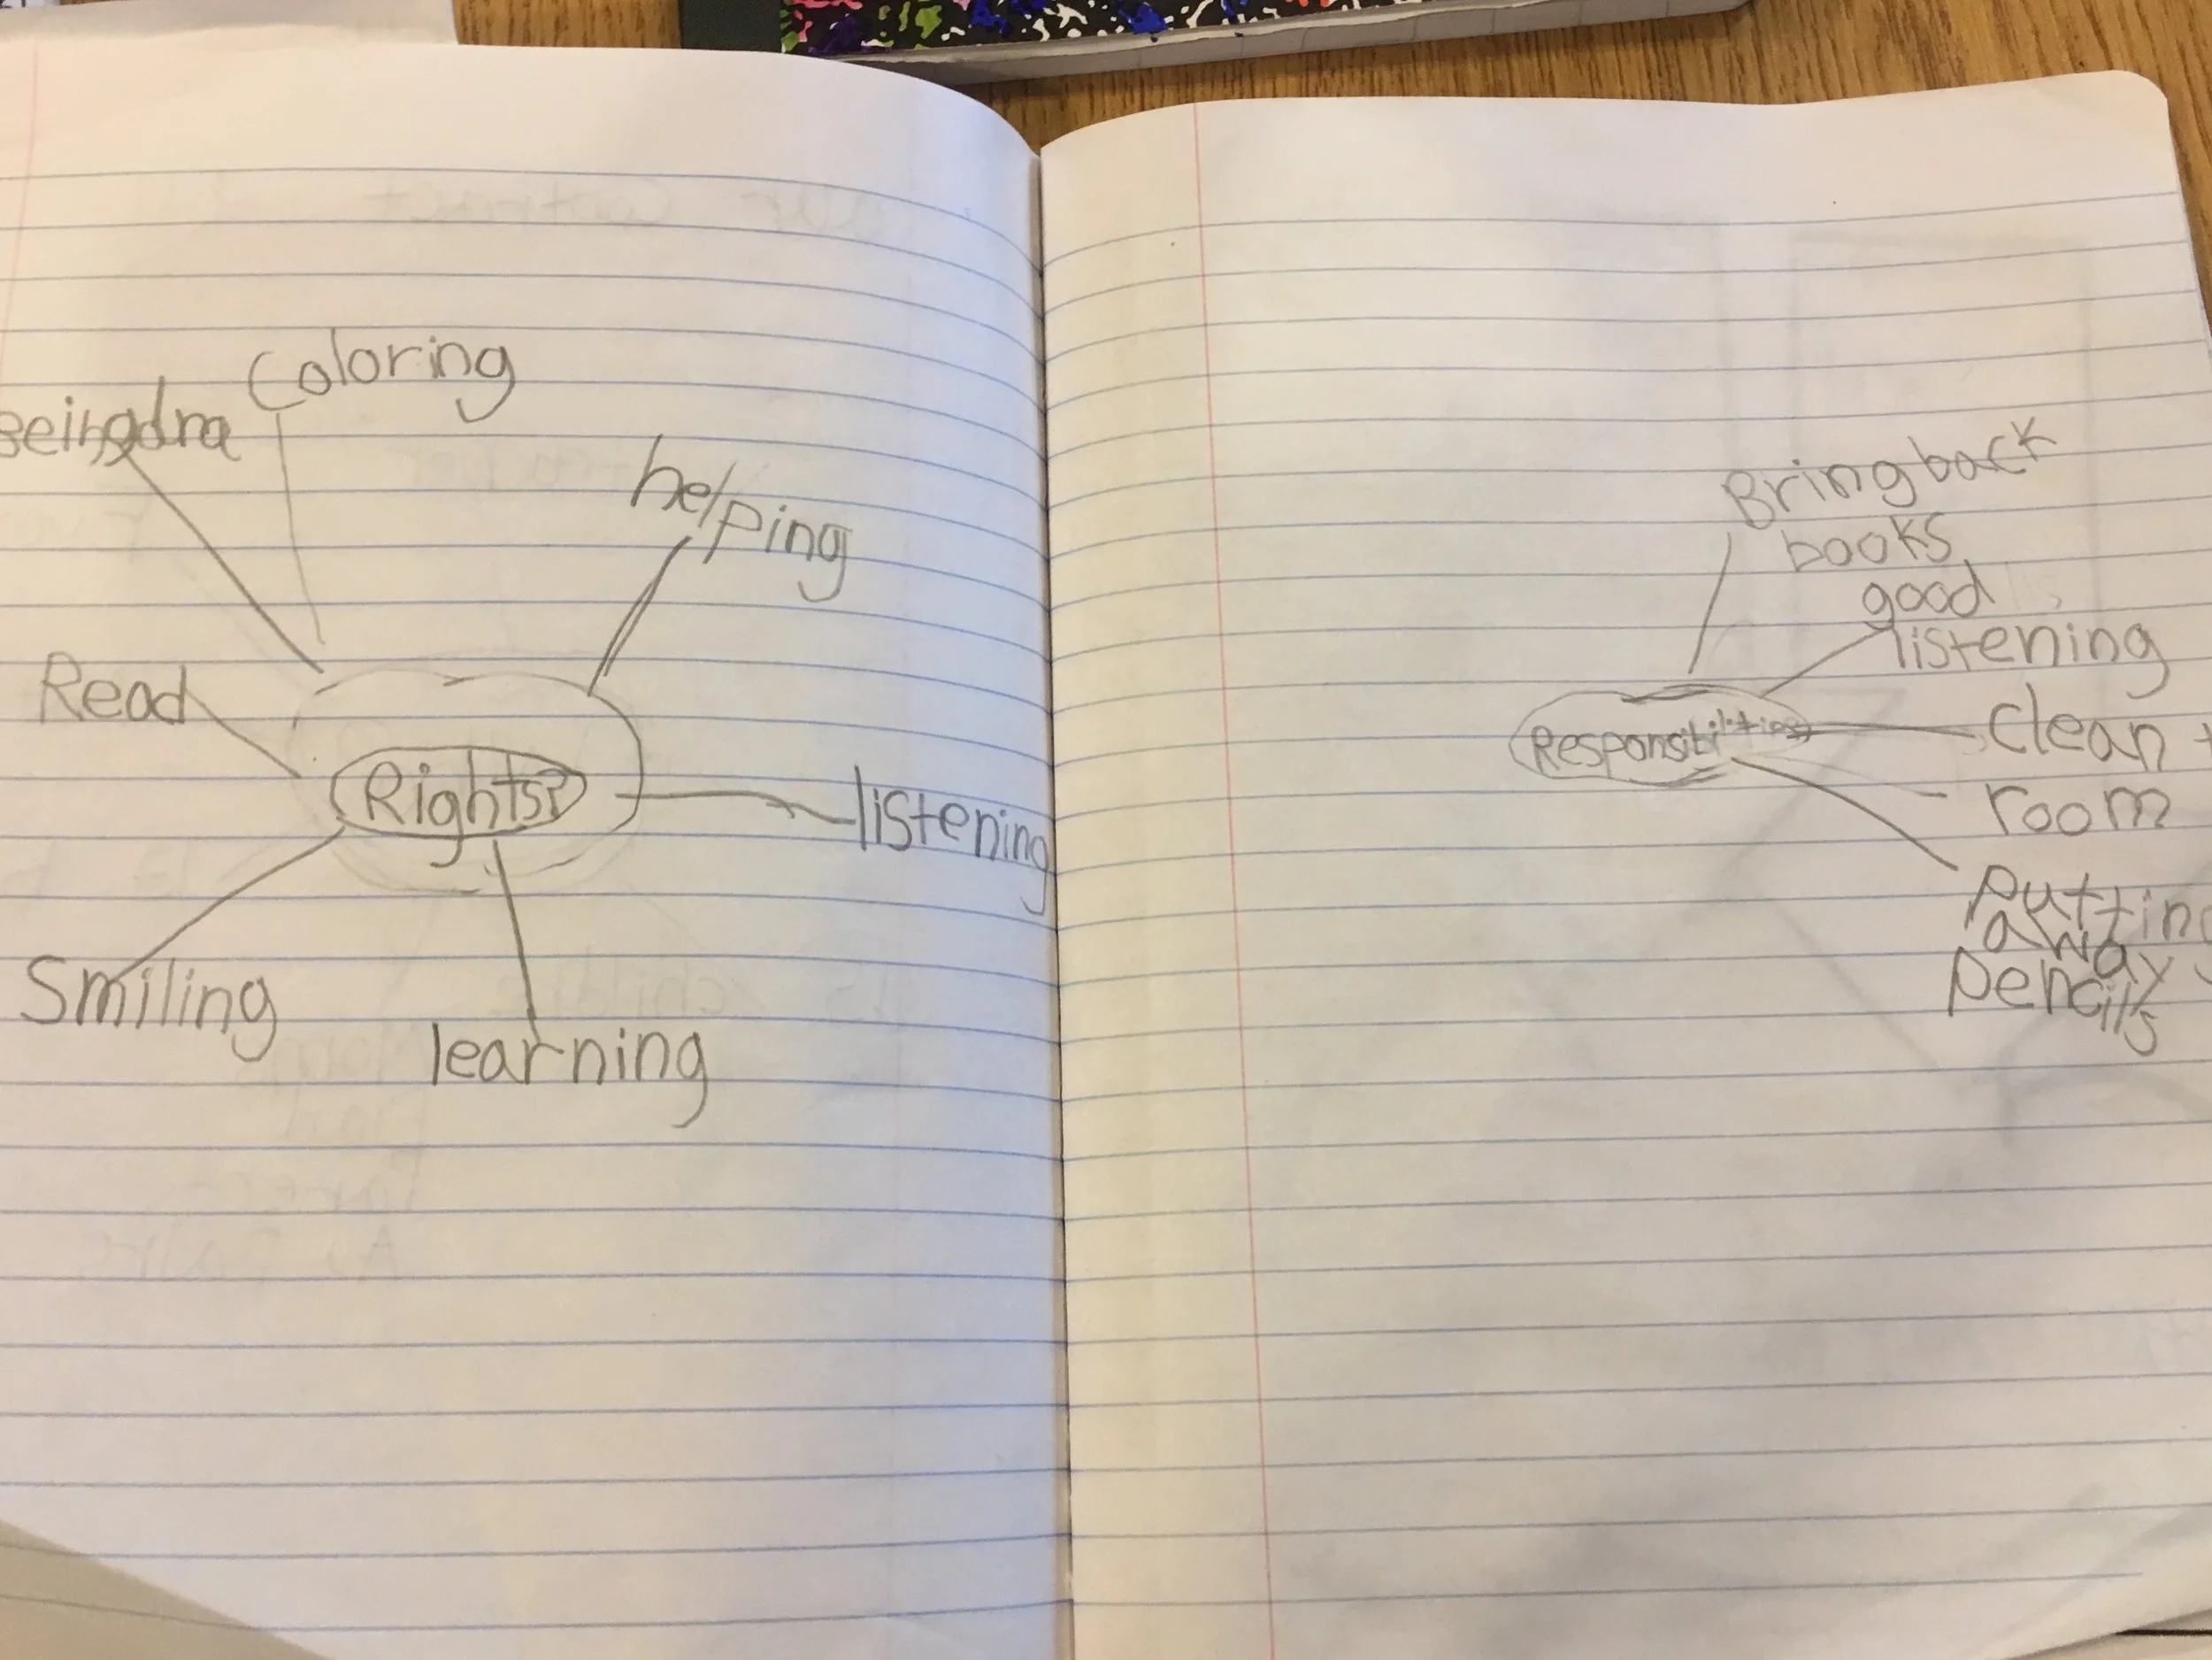 Coloring
helping
Read
Rights?
listening
Smiling
learning
Bring back
books
good
listening
Responsibilities
clean
room
putting
away
pencils